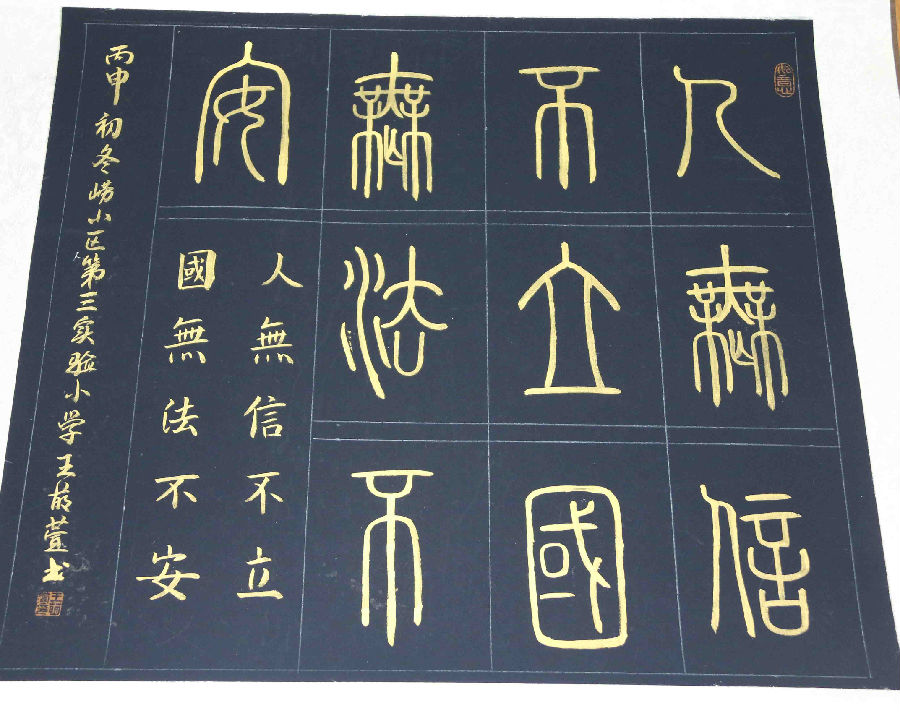 如意
人無信
不立國
無法不
安
人無信不立
國無法不安
丙申初冬崂山区第三实验小学王萌萱书